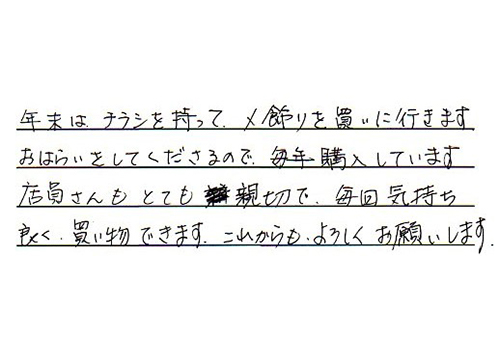 年末は、チラシを持って、〆飾りを買いに行きます
おはらいをしてくださるので、毎年購入しています
店員さんもとても親切で、毎回気持ち
良く、買い物できます。これからも、よろしくお願いします。